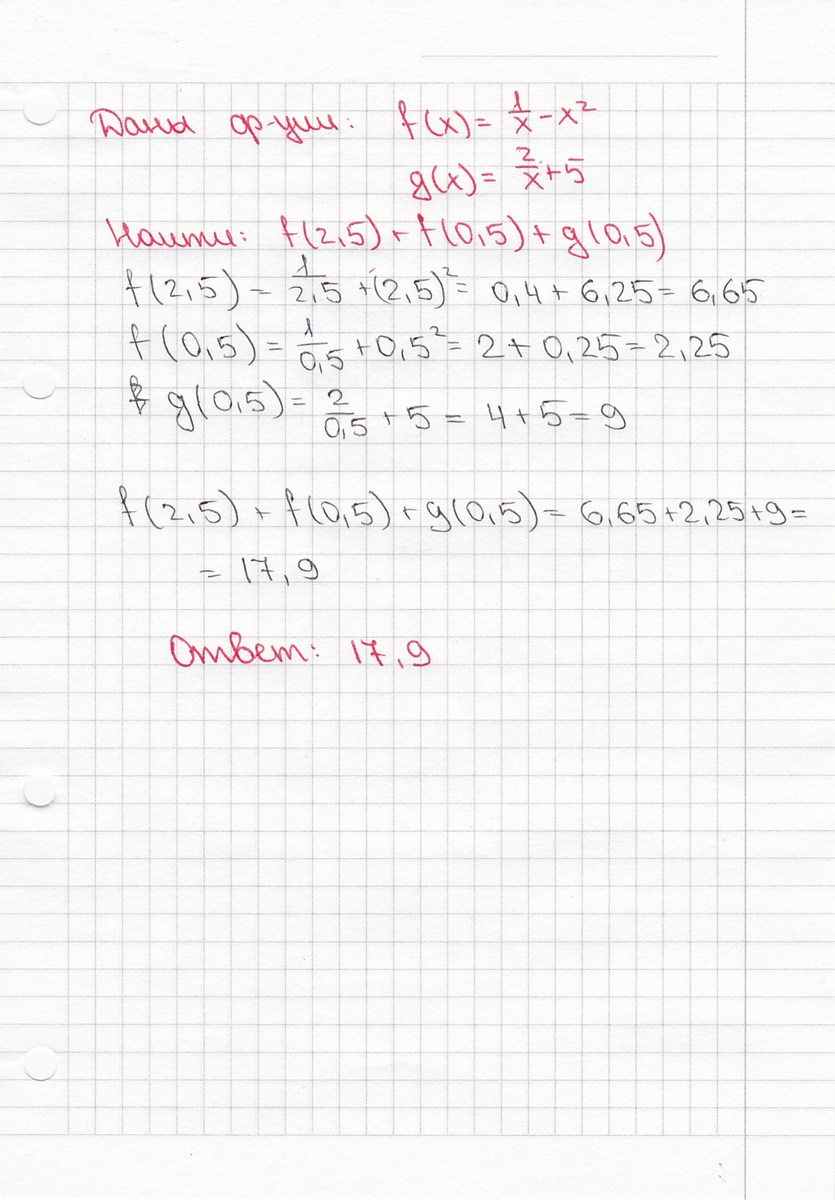 Даны ф-уии: f(x) = 1/x - x²
g(x) = 2/x + 5
Найти: f(2,5) + f(0,5) + g(0,5)
f(2,5) = 1/2,5 + (2,5)² = 0,4 + 6,25 = 6,65
f(0,5) = 1/0,5 + 0,5² = 2 + 0,25 = 2,25
g(0,5) = 2/0,5 + 5 = 4 + 5 = 9
f(2,5) + f(0,5) + g(0,5) = 6,65 + 2,25 + 9 =
= 17,9
Ответ: 17,9